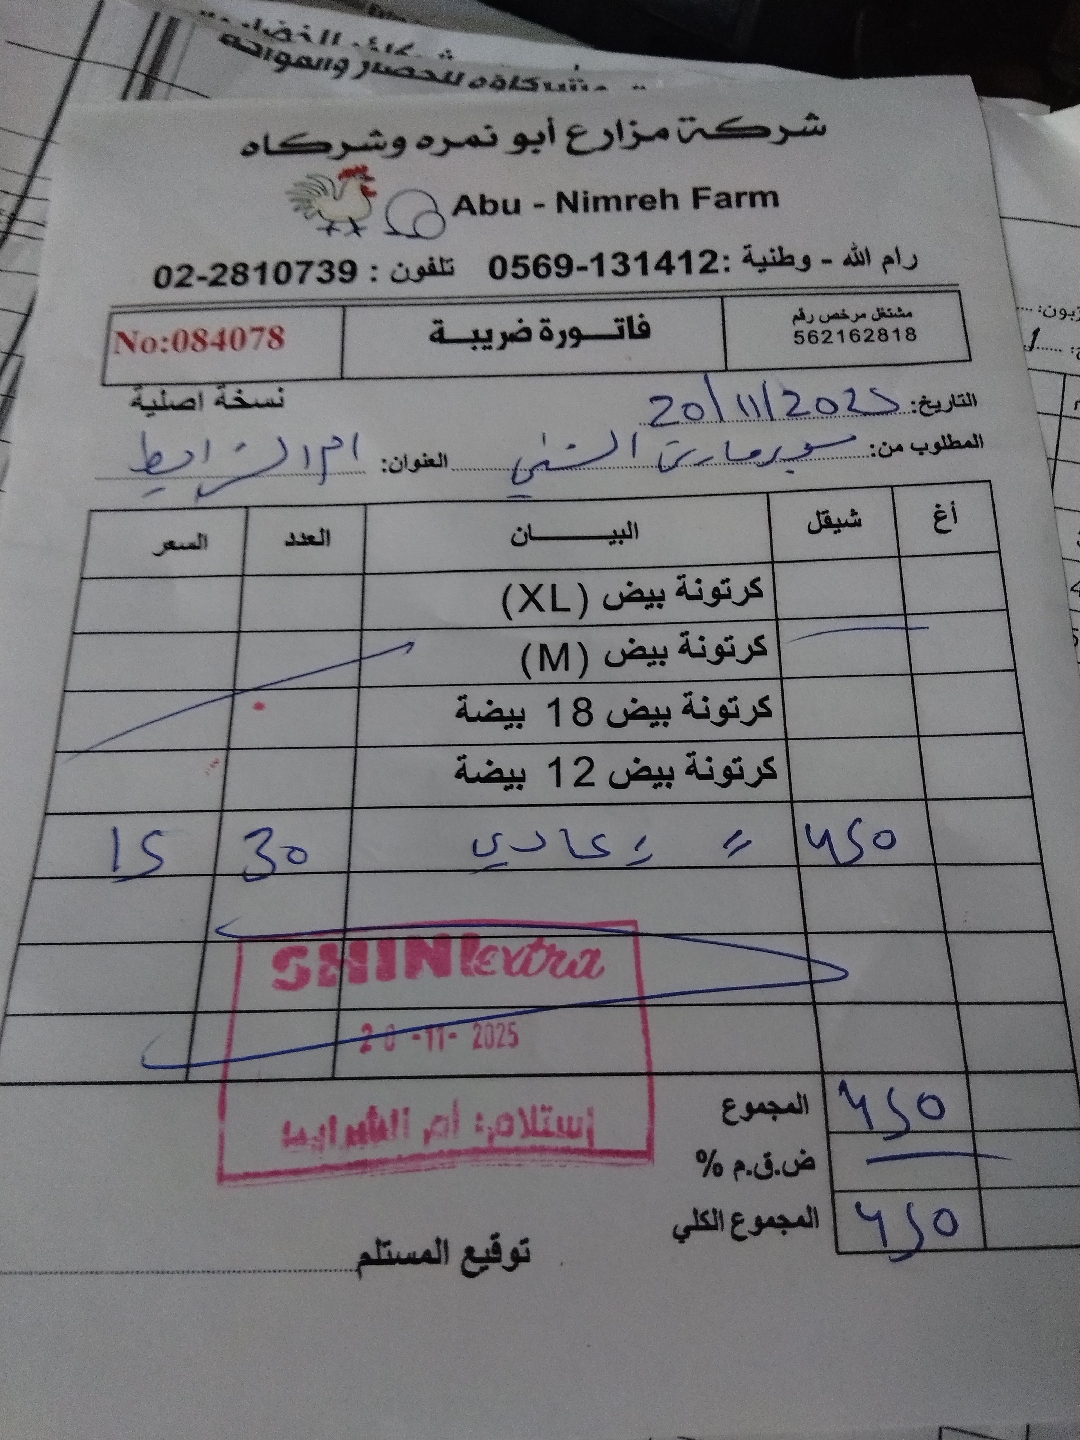 شركة مزارع أبو نمره وشركاه
Abu - Nimreh Farm
رام الله - وطنية :0569-131412 تلفون : 02-2810739
مشتغل مرخص رقم
562162818
فاتـورة ضريبة
No:084078
نسخة اصلية
التاريخ: 20/11/2025
المطلوب من: سوبرماركت الشني العنوان: ام الشرايط
أغ شيقل البيـــان العدد السعر
كرتونة بيض (XL)
كرتونة بيض (M)
كرتونة بيض 18 بيضة
كرتونة بيض 12 بيضة
450 〃 عادي 30 15
SHINI extra
20 -11- 2025
إستلام: أم الشرايط
المجموع 450
ض.ق.م %
المجموع الكلي 450
توقيع المستلم